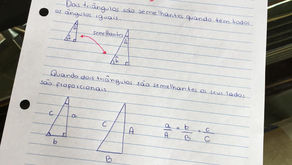 Dois triângulos são semelhantes quando tem todos
os ângulos iguais.
semelhantes
Quando dois triângulos são semelhantes os seus lados
são proporcionais.
c a
b
C A
B
a/A = b/B = c/C